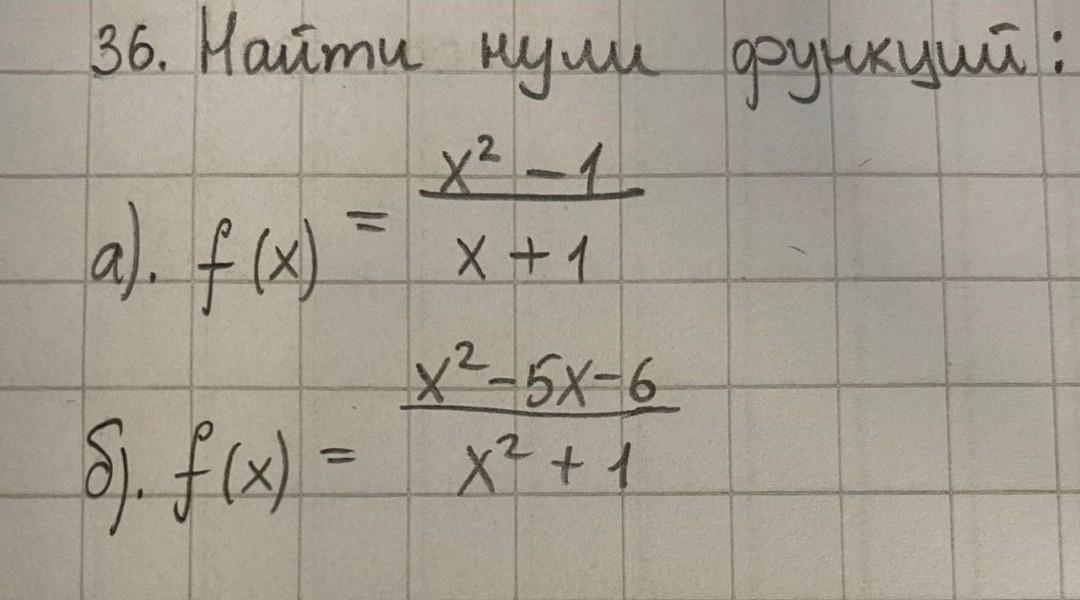 36. Найти нули функций:
а). f(x) = (x² - 1)/(x + 1)
б). f(x) = (x² - 5x - 6)/(x² + 1)